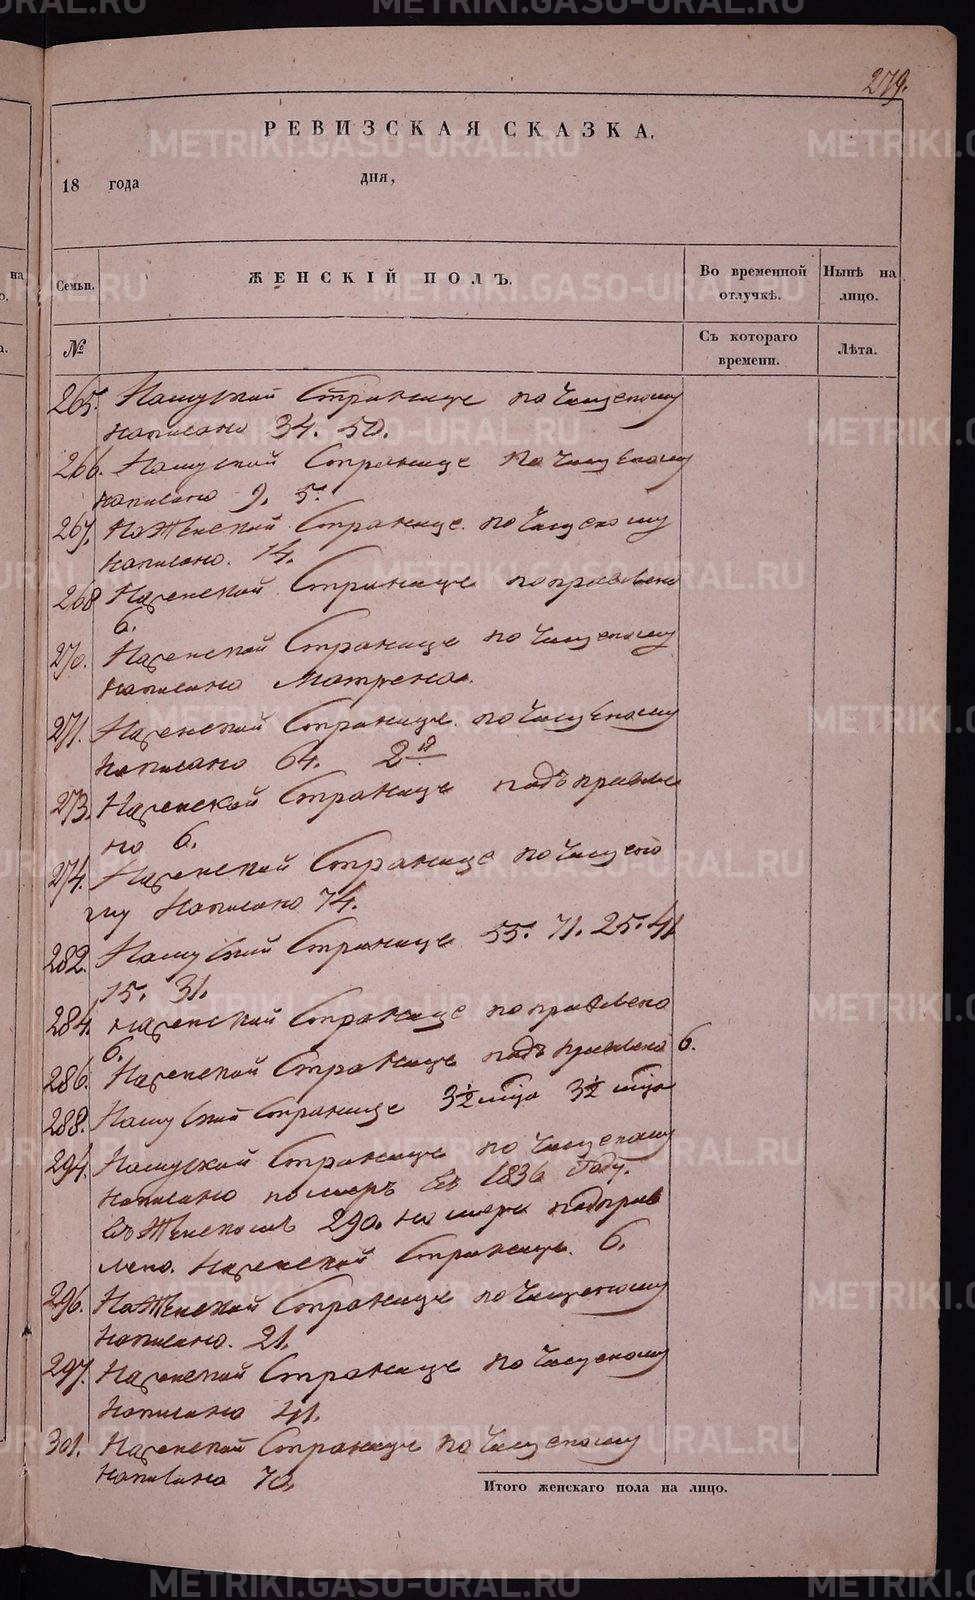 279.
РЕВИЗСКАЯ СКАЗКА.
18 года дня,
Семьи. ЖЕНСКІЙ ПОЛЪ. Во временной отлучкѣ. Нынѣ на лицо.
№ Съ котораго времени. Лѣта.
265. На мужской Странице по чищеному
написано 34. 50.
266. На мужской Странице по чищеному
написано 9. 5.
267. На Женской Странице по чищеному
написано. 14.
268 На женской Странице поправлено
6.
270. На женской Странице по чищеному
написано Матрена.
271. На женской Странице по чищеному
написано 64. 2я
273. На женской Странице подъправле
но 6.
274. На женской Странице по чищено
му написано 74.
282. На мужской Странице 55. 71. 25. 41
15. 31.
284. на женской Странице поправлено
6.
286. На женской Странице подъправлено 6.
288. На мужской Странице 3½ м͞ца 3½ м͞ца
294. На мужской Странице по чищеному
написано померъ въ 1836 Году.
въ Женскомъ 290. номеръ подправ
лено. На женской Странице. 6.
296. На Женской Странице по чищеному
написано. 21.
297. На женской Странице по чищеному
написано 41.
301. На женской Странице по чищеному
написано 70.
Итого женскаго пола на лицо.
METRIKI.GASO-URAL.RU